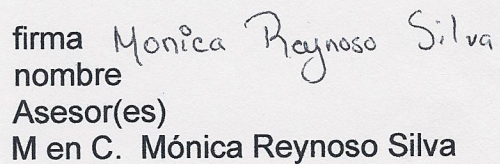 firma Monica Reynoso Silva
nombre
Asesor(es)
M en C. Mónica Reynoso Silva